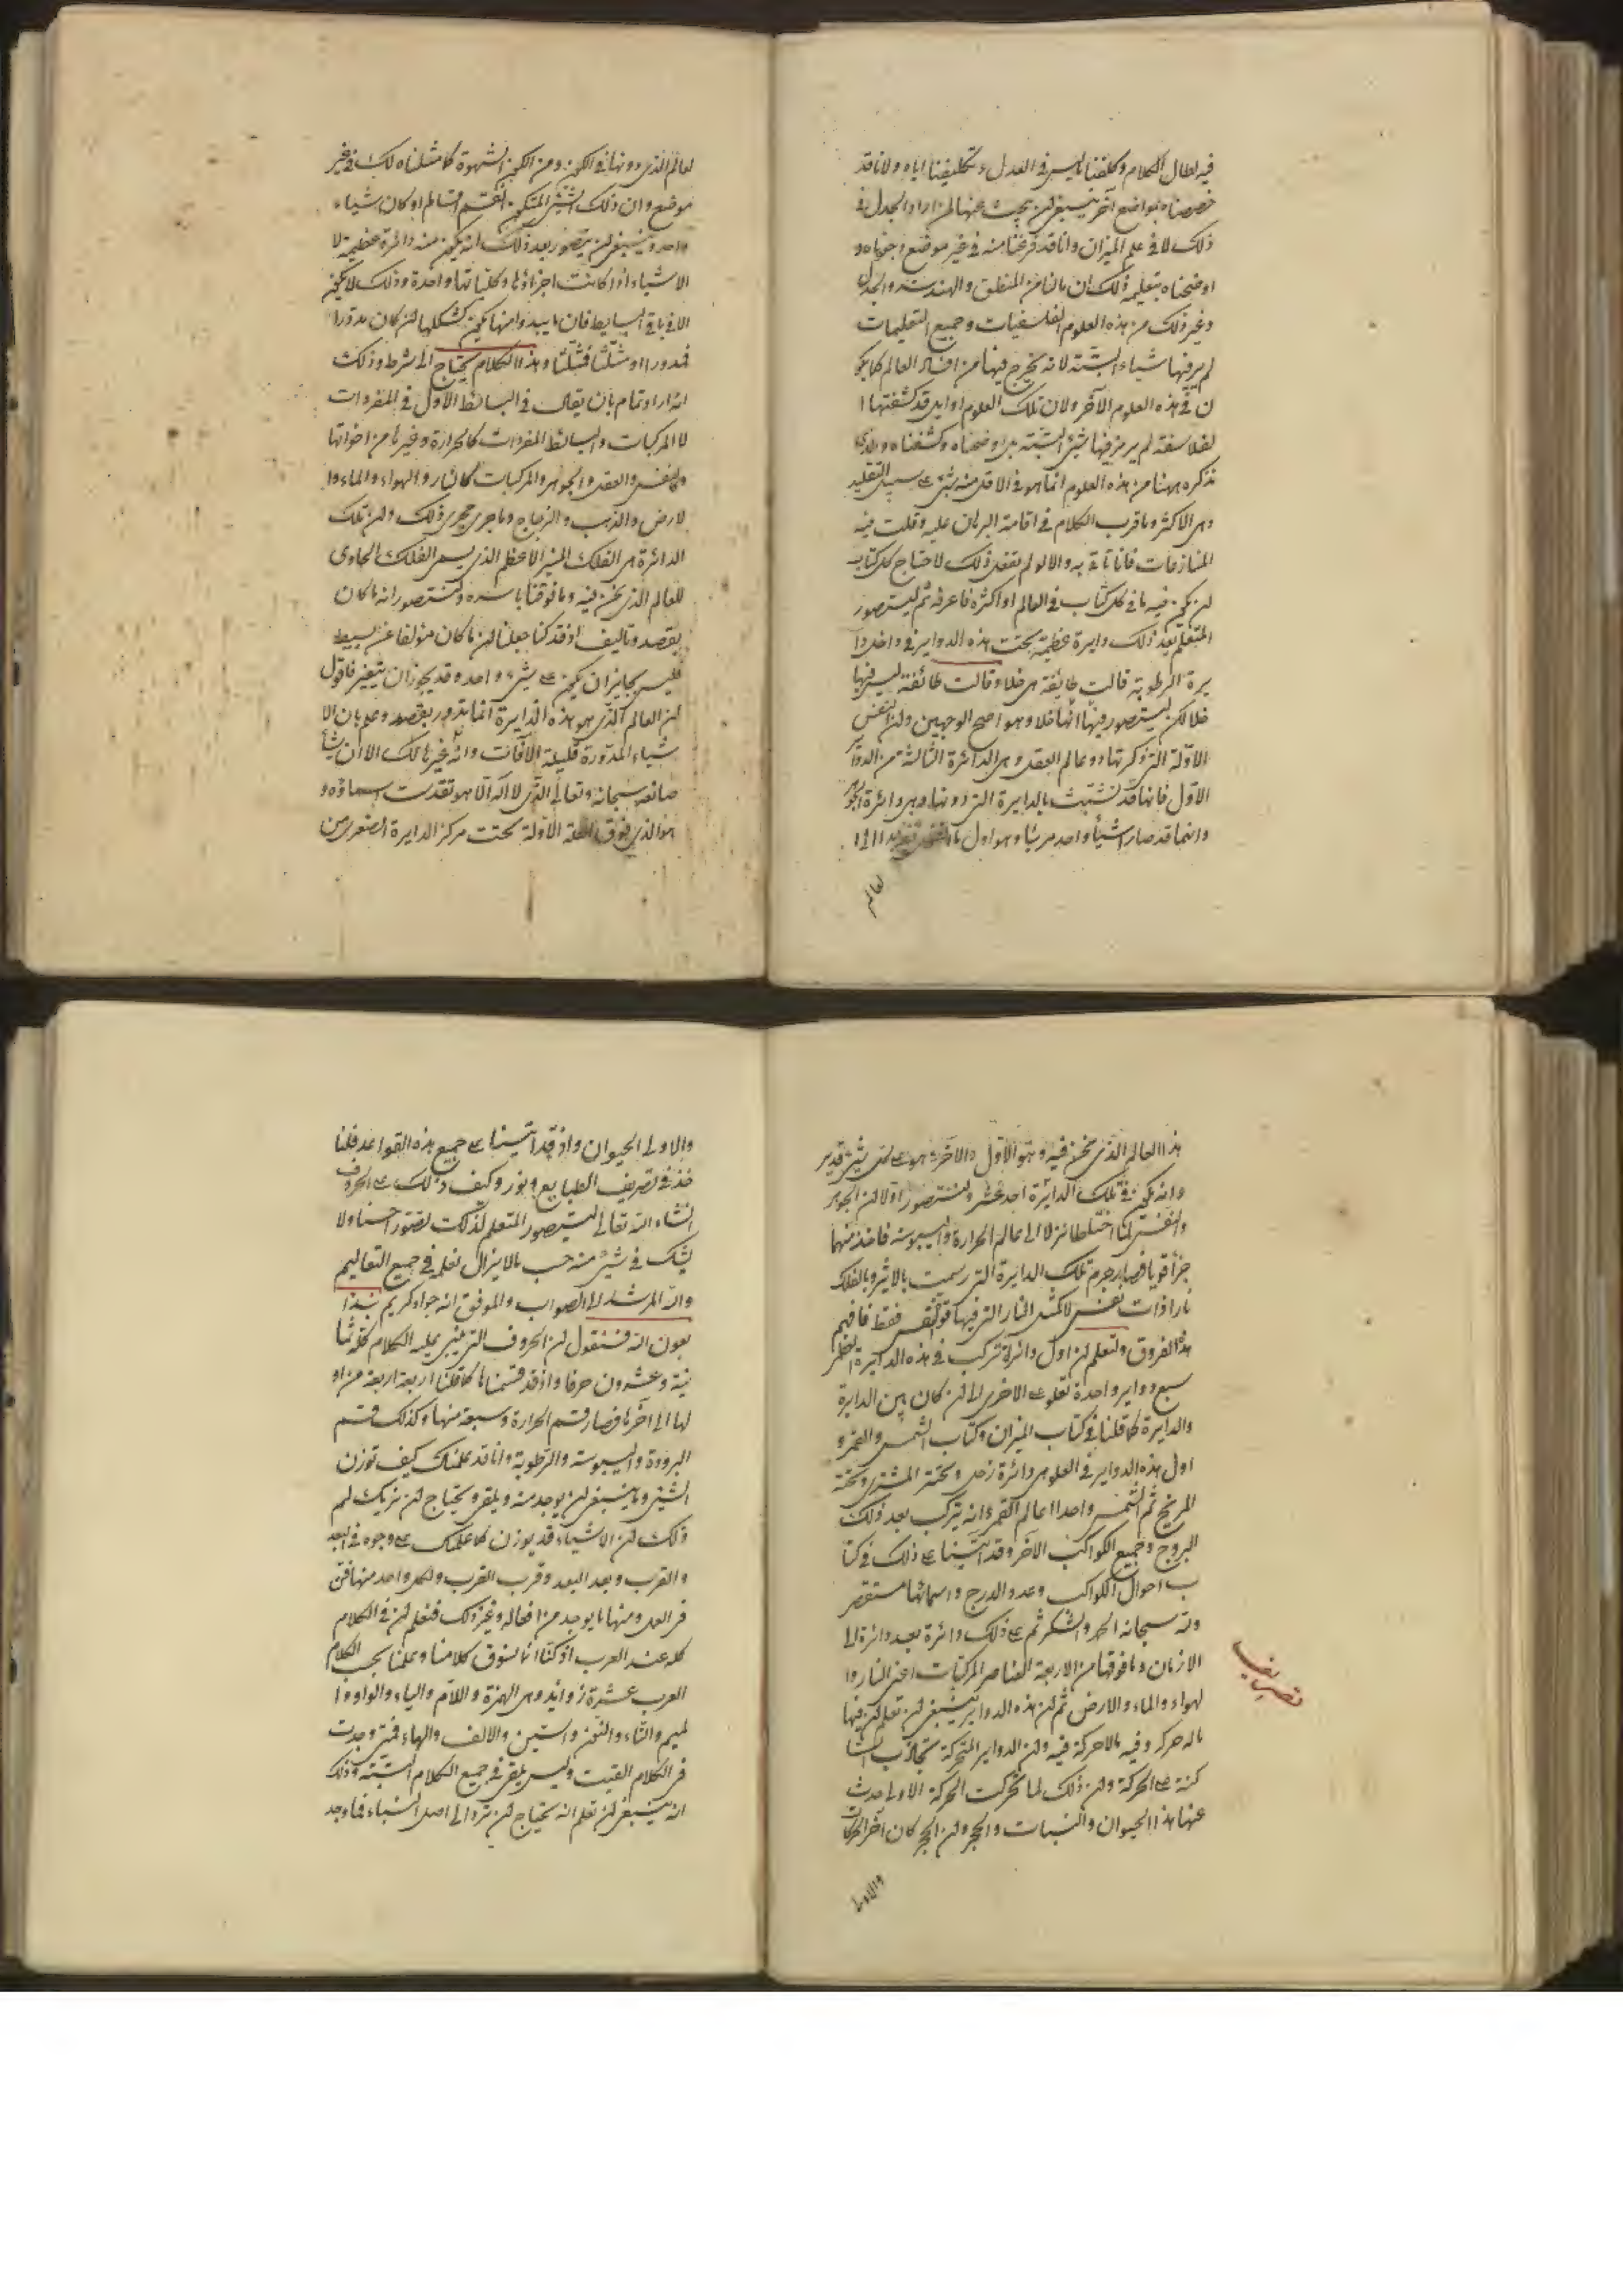 فيه لطال الكلام وكلفنا ما ليس في العدل تكليفنا اياه ولانا قد
خصصناه بمواضع آخر ينبغي لن يبحث عنها لمن اراد الجدل في
ذلك لا في علم الميزان وانا قد فرغنا منه في غير موضع وجوناه و
اوضحناه بتعليمه ذلك ان مالنا من المنطق والهندسة والجدل
وغير ذلك من هذه العلوم الفلسفيات وجميع التعليمات
لم يرمز فيها شياء البتة لانه يخرج فيها من افساد العالم كما يكو
ن في هذه العلوم الآخر ولان تلك العلوم اوايل قد كشفتها ا
لفلاسفة لم يرمز فيها شيئ البتة بل اوضحناه وكشفناه والذي
نذكره ههنا من هذه العلوم انما هو في الاقل منه شئ على سبيل التقليد
وهى الاكثر وما قرب الكلام في اقامة البرهان عليه وقلت فيه
المنازعات فانا ناتى به والا لو لم نفعل ذلك لاحتاج كل كتاب
لن يكون فيه ما في كل كتاب في العالم او اكثره فاعرفه ثم ليتصور
المتعلم بعد ذلك دايرة عظيمة تحت هذه الدواير في داخل دا
يرة الرطوبة قالت طائفة هى خلا وقالت طائفة ليس فيها
خلا لكن ليتصور فيها انها خلا وهو اصح الوجهين ولن النفس
الاولة التى ذكرتها دون عالم العقل وهى الدائرة الثالثة من الدوا
الاول فانها قد تشبثت بالدايرة التى دونها وهى دائرة الجوهر
وانهما قد صارا شيأ واحد مرئيا وهو اول
لعالم
لعالم الذى دونها في الكون ومن الكون الشهوة كما مثلناه لك في غير
موضع وان ذلك الشئ المتكون انقسم اقساما او كان شياء
واحد وينبغى لن يتصور بعد ذلك انه يكون منه دائرة عظيمة لا
الاشياء اذا كانت اجزاؤها وكلياتها واحدة وذلك لا يكون
الا في باقى البسايط فان ما يبدوا منها يكون كشكلها لن كان مدورا
فمدورا او مثلثا فمثلثا وهذا الكلام يحتاج الى شرط وذلك
انه اراد تمام بان يقال في البسائط الاول في المفردات
لا المركبات والبسائط المفردات كالحرارة وغيرها من اخواتها
والنفس والعقل والجوهر والمركبات كالنار والهواء والماء وا
لارض والذهب والزجاج وما جرى مجرى ذلك ولن تلك
الدائرة هى الفلك المنير الاعظم الذى يسمى الفلك الحاوى
للعالم الذى نحن فيه وما فوقنا باسره ولتتصور انه ما كان
بقصد وتاليف اذ قد كنا جعلنا لن ما كان مؤلفا عن بسيط
فليس بجايز ان يكون على شئ واحد وقد يجوز ان يتغير فاقول
لن العالم الذى هو هذه الدايرة انما تدور بقصد وعلم بان الا
شياء المدورة قليلة الآفات وانه غير هالك الا ان يشأ
صانعه سبحانه وتعالى الذى لا اله الا هو تقدست اسماؤه و
هو الذى فوق العلة الاولة تحت مركز الدايرة الصغرى من
هذا العالم الذى نحن فيه وهو الاول والآخر وهو على كل شئ قدير
وانه يكون في تلك الدائرة احد عشر ولنتصور اولا لن الجوهر
والنفس لما اختلطا نزلا الى عالم الحرارة واليبوسة فاخذ منهما
جزأ قويا فصار جرم تلك الدايرة التى رسمت بالاثير وبالفلك
نارا ذات نفس لا كمثل النار التى فيها قوة النفس فقط فافهم
هذا الفروق ولتعلم لن اول دائرة تركب في هذه الدايرة العظمى
سبع دواير واحدة تعلو على الاخرى الا لن كان بين الدايرة
والدايرة كما قلنا في كتاب الميزان وكتاب الشمس والقمر و
اول هذه الدواير في العلو هى دائرة زحل وتحته المشترى وتحته
المريخ ثم الشمس واحدا عالم القمر وانه يتركب بعد ذلك
البروج وجميع الكواكب الآخر وقد اتينا على ذلك في كتا
ب احوال الكواكب وعدد الدرج واسمائها مستقصى
ولله سبحانه الحمد والشكر ثم على ذلك دائرة بعد دائرة الى
الازمان وما فوقها من الاربعة العناصر المركبات اعنى النار وا
لهواء والماء والارض ثم لن هذه الدواير ينبغى لن تعلم لن فيها
ماله حركة وفيه مالا حركة فيه ولن الدواير المتحركة تجاذب السا
كنة على الحركة ولن ذلك لما تحركت الحركة الاولى حدث
عنها هذا الحيوان والنبات والحجر ولن الحجر كان آخر الحركات
والاولى
تصريف
والاولى الحيوان واذ قد اتينا على جميع هذه القواعد فلنا
خذ في تصريف الطبايع وكيف ذلك على الحروف
انشاء الله تعالى ليتصور المتعلم لذلك تصورا حسنا ولا
يشك في شئ منه حسب مالا يزال نعلمه في جميع التعاليم
والله المرشد الى الصواب والموفق انه جواد كريم نبدا
بعون الله فنقول لن الحروف التى ينبنى عليه الكلام كله ثما
نية وعشرون حرفا واذ قد قسمناها كما قلنا اربعة اربعة من او
لها الى آخرها فصار قسم الحرارة وسبعة منها وكذلك قسم
البرودة واليبوسة والرطوبة وانا قد علمناك كيف توزن
الشئ وما ينبغى لن يوجد منه ويلقى ويحتاج لن نريك لم
ذلك لن الاشياء قد يوزن كما علمناك على وجوه في البعد
والقرب وبعد البعد وقرب القرب ولكل واحد منها فن
فى العدل ومنها ما يوجد من افعاله وغير ذلك فنعلم لن في الكلام
كله عند العرب اذ كنا انما نسوق كلامنا وعلمنا بحسب الكلام
العرب عشرة زوائد وهى الهمزة واللام والياء والواو وا
لميم والتاء والنون والسين والالف والهاء فمتى وجدت
فى الكلام القيت وليس يلقى في جميع الكلام البتة وذلك
انه ينبغى لن تعلم انه يحتاج لن ترد الى اصل البناء فما وجد